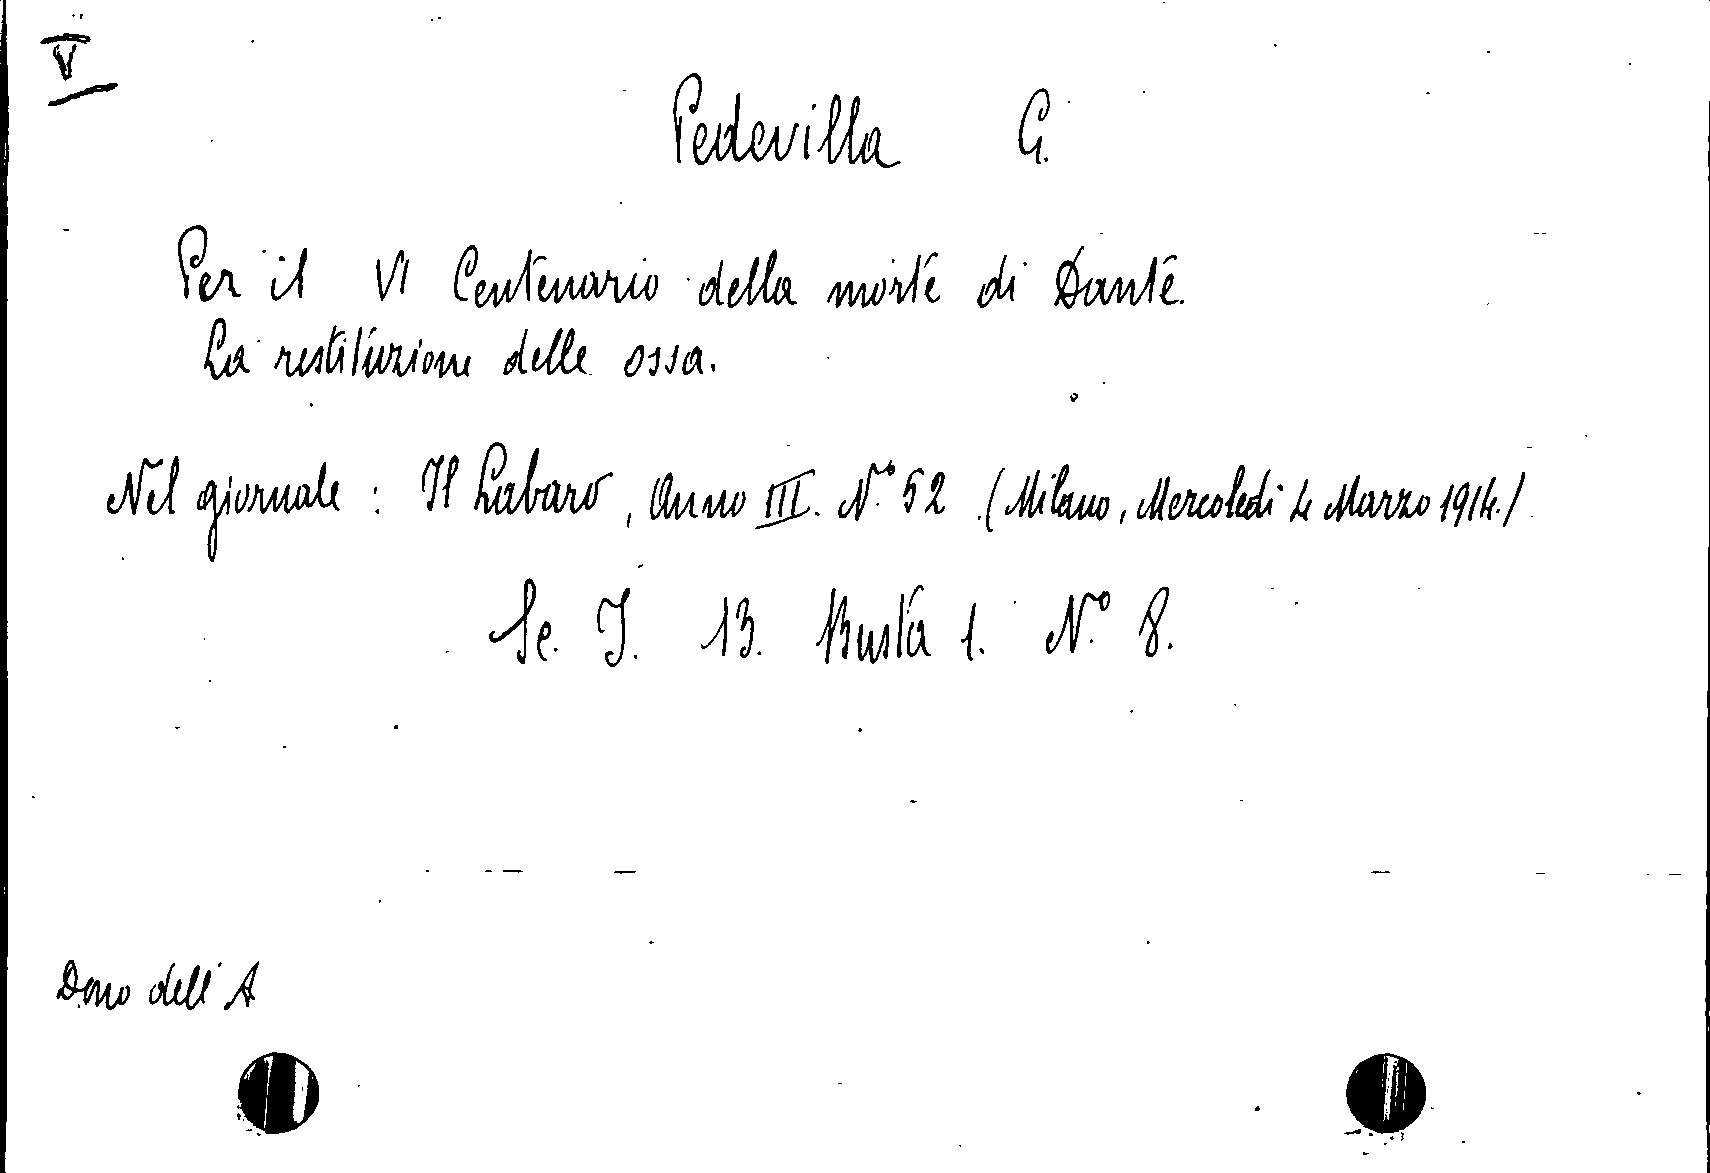 V
Pedevilla G.
Per il VI Centenario della morte di Dante.
La restituzione delle ossa.
Nel giornale : Il Labaro, Anno III. N.° 52 (Milano, Mercoledì 4 Marzo 1914.)
Se. I. 13. Busta 1. N.° 8.
Dono dell'A